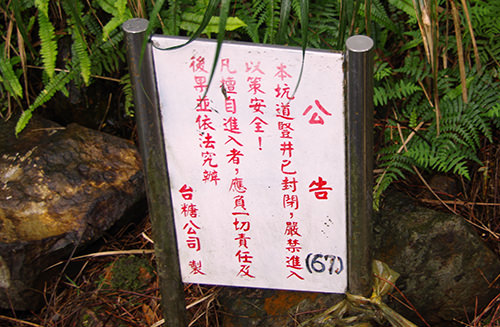 公告
本坑道豎井已封閉，嚴禁進入
以策安全！
凡擅自進入者，應負一切責任及
後果並依法究辦
台糖公司 製
(67)